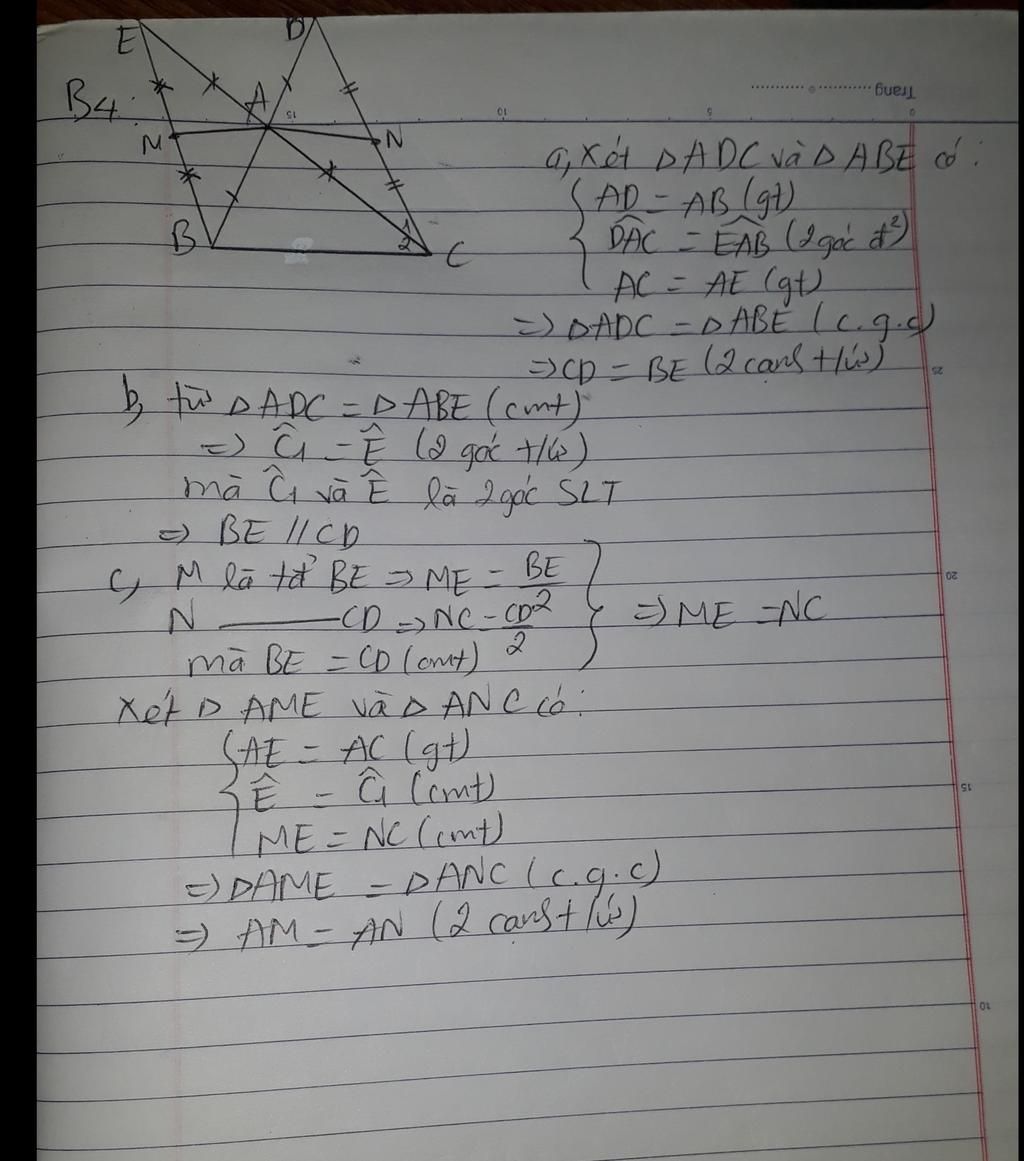 E
D
B4:
A
M
N
B
1
2
C
Trang
15
10
5
0
a, Xét ΔADC và ΔABE có:
AD = AB (gt)
D̂AC = ÊAB (2 góc đ²)
AC = AE (gt)
=> ΔADC = ΔABE (c.g.c)
=> CD = BE (2 cạnh t/ứ)
25
b, từ ΔADC = ΔABE (cmt)
=> Ĉ1 = Ê (2 góc t/ứ)
mà Ĉ1 và Ê là 2 góc SLT
=> BE // CD
c, M là tđ' BE => ME = BE/2
20
N ——— CD => NC = CD/2
=> ME = NC
mà BE = CD (cmt)
Xét Δ AME và Δ ANC có:
AE = AC (gt)
Ê = Ĉ1 (cmt)
15
ME = NC (cmt)
=> ΔAME = ΔANC (c.g.c)
=> AM = AN (2 cạnh t/ứ)
10